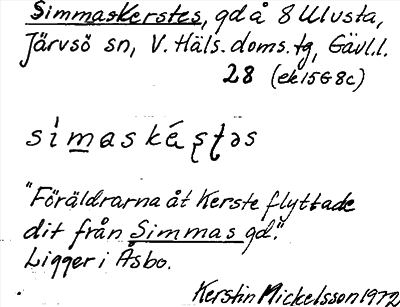 Simmaskerstes, gd å 8 Ulvsta,
Järvsö sn, V. Häls. doms. tg, Gävl.l.
28 (ek 15G8c)
sìmaskéʂʈəs
"Föräldrarna åt Kerste flyttade
dit från Simmas gd."
Ligger i Åsbo.
Kerstin Mickelsson 1972